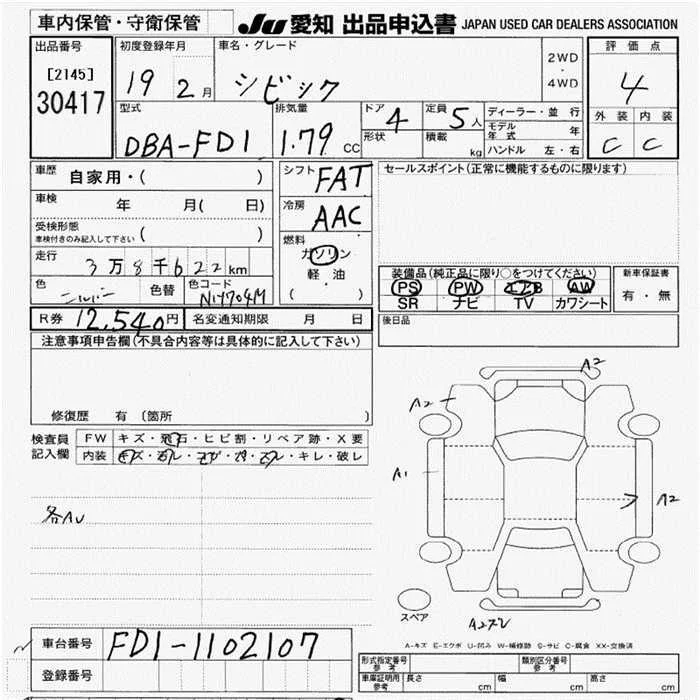 車内保管・守衛保管
JU 愛知 出品申込書 JAPAN USED CAR DEALERS ASSOCIATION
出品番号
[2145]
30417
初度登録年月
19 2月
車名・グレード
シビック
2WD
・
4WD
評価点
4
外装 内装
C C
型式
DBA-FD1
排気量
1.79 CC
ドア 4
形状
定員 5人
積載 kg
ディーラー・並行
モデル年式 年
ハンドル 左・右
車歴 自家用・( )
車検 年 月( 日)
受検形態
車検付きのみ記入して下さい ( )
走行
3万8千622km
色 シルバー 色替
色コード
NH704M
シフト FAT
冷房 AAC
燃料
ガソリン
軽・油
( )
セールスポイント(正常に機能するものに限ります)
装備品(純正品に限り○をつけてください)
PS PW エアB AW
SR ナビ TV カワシート
新車保証書
有・無
後日品
R券 12,540円 名変通知期限 月 日
注意事項申告欄(不具合内容等は具体的に記入して下さい)
修復歴 有 (箇所 )
検査員
記入欄
FW キズ・飛石・ヒビ割・リペア跡・X要
内装 キズ・・キレ・破レ
各AU
A2
A2
A1
A2
スペア
A-キズ E-エクボ U-凹み W-補修跡 S-サビ C-腐食 XX-交換済
車台番号 FD1-1102107
登録番号
形式指定番号
参考
類別区分番号
参考
車庫証明用
参考
長さ cm 幅 cm 高さ cm